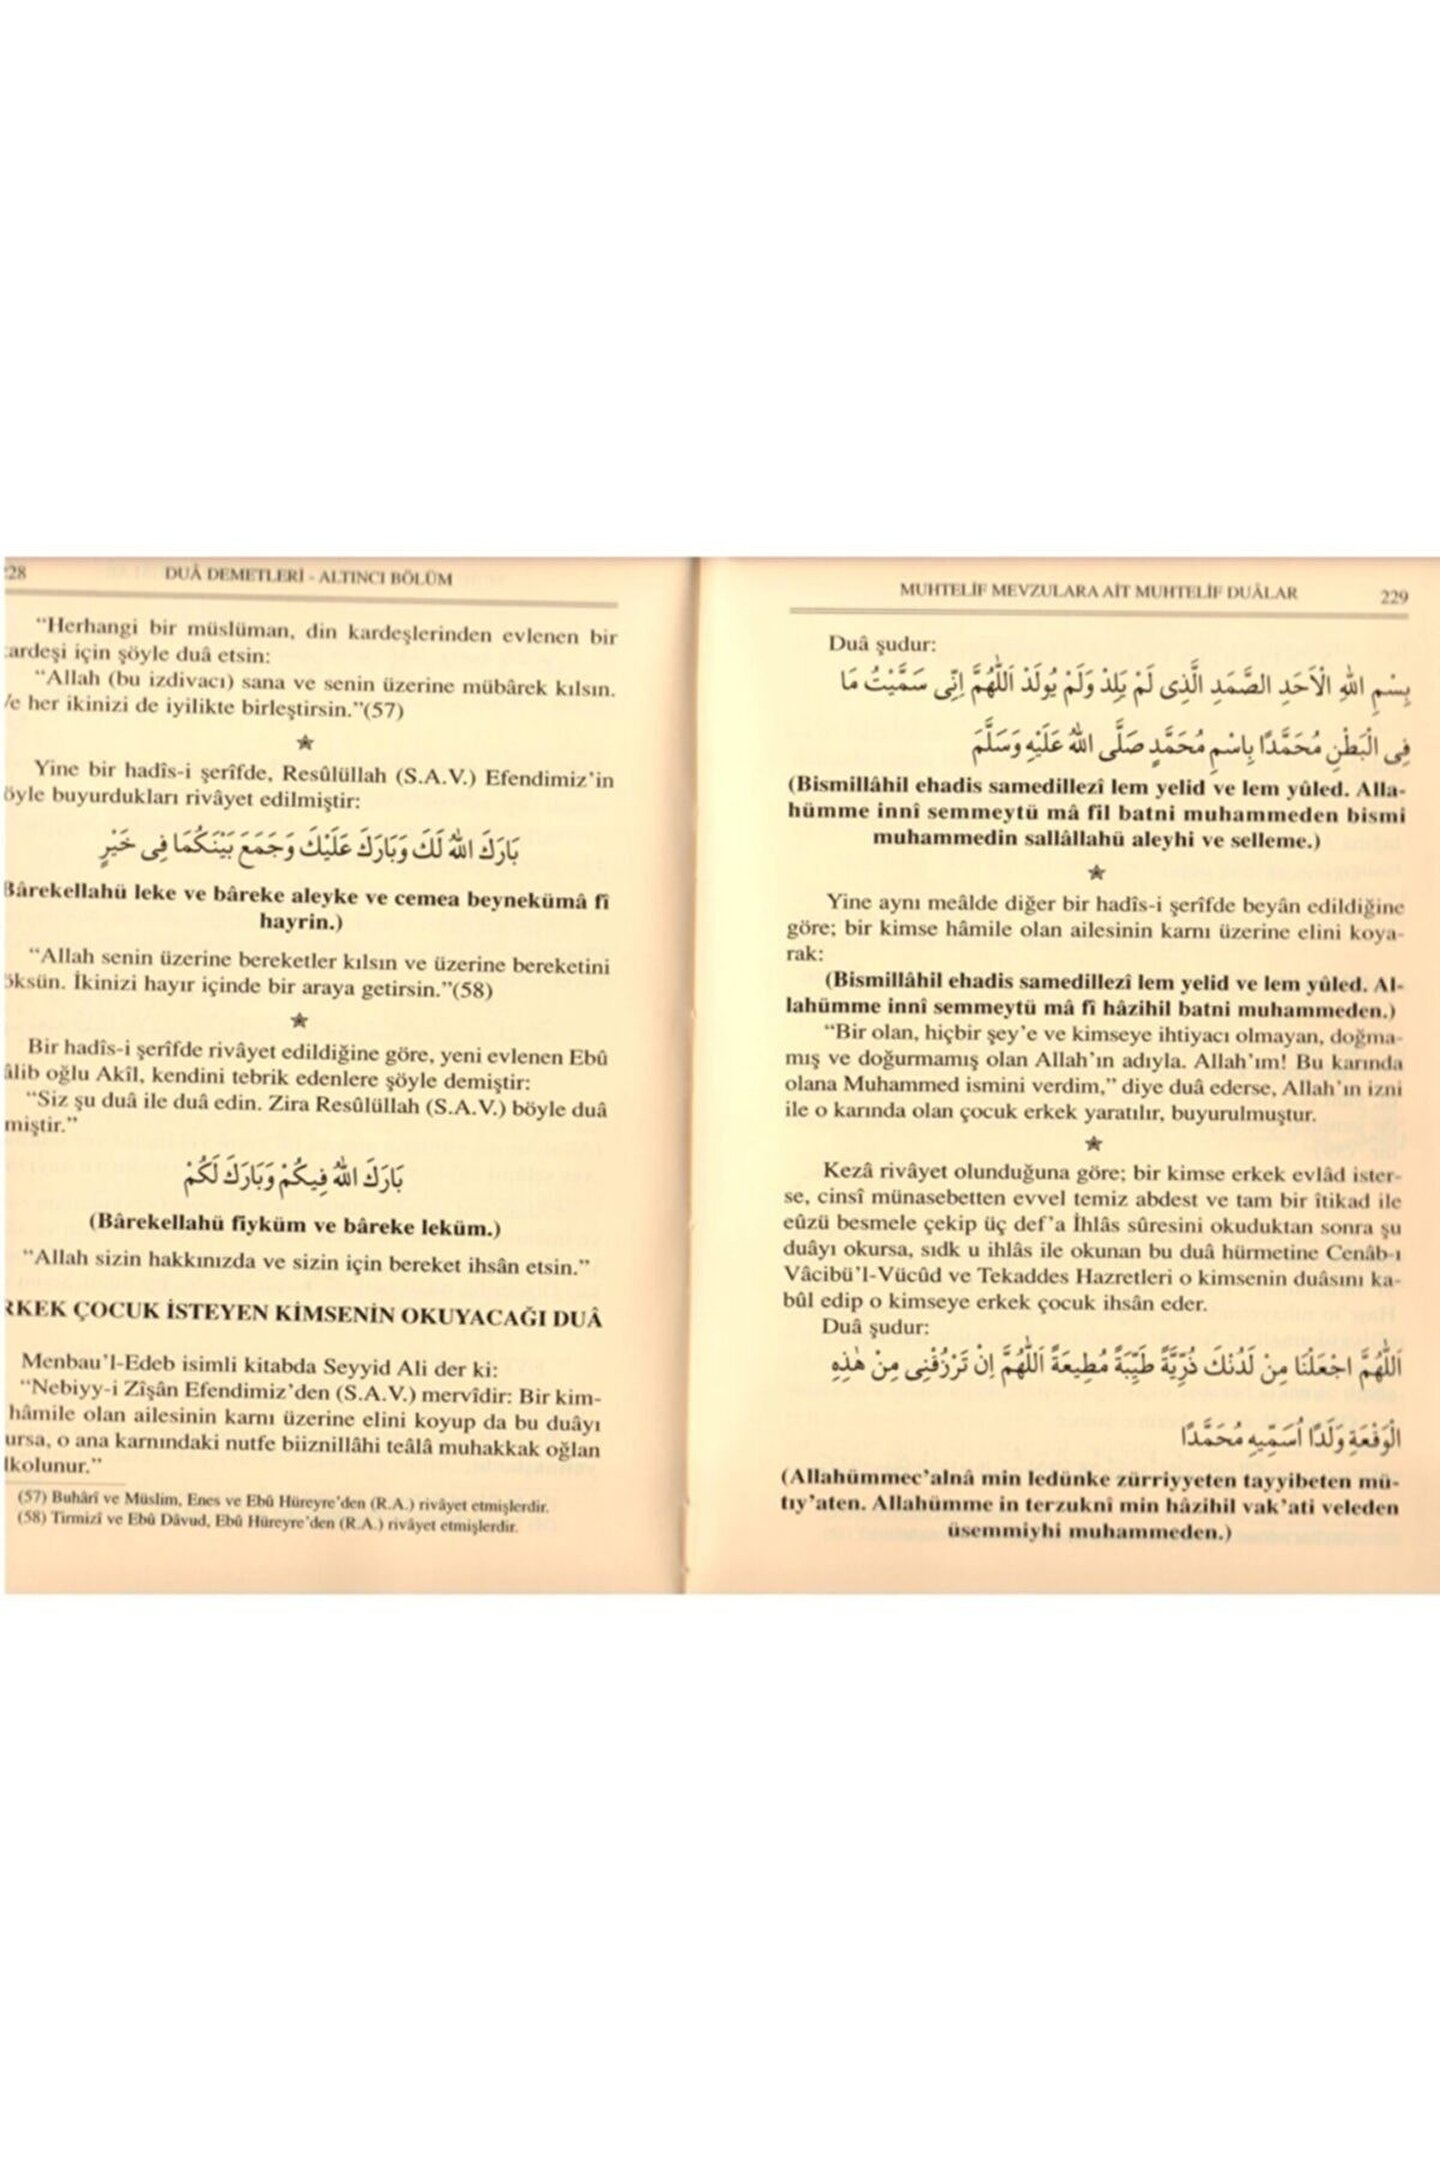 228
DUÂ DEMETLERİ - ALTINCI BÖLÜM
"Herhangi bir müslüman, din kardeşlerinden evlenen bir
ardeşi için şöyle duâ etsin:
"Allah (bu izdivacı) sana ve senin üzerine mübârek kılsın.
Ve her ikinizi de iyilikte birleştirsin."(57)
★
Yine bir hadîs-i şerîfde, Resûlüllah (S.A.V.) Efendimiz'in
öyle buyurdukları rivâyet edilmiştir:
بَارَكَ اللّٰهُ لَكَ وَبَارَكَ عَلَيْكَ وَجَمَعَ بَيْنَكُمَا فِى خَيْرٍ
Bârekellahü leke ve bâreke aleyke ve cemea beynekümâ fî
hayrin.)
"Allah senin üzerine bereketler kılsın ve üzerine bereketini
öksün. İkinizi hayır içinde bir araya getirsin."(58)
★
Bir hadîs-i şerîfde rivâyet edildiğine göre, yeni evlenen Ebû
âlib oğlu Akîl, kendini tebrik edenlere şöyle demiştir:
"Siz şu duâ ile duâ edin. Zira Resûlüllah (S.A.V.) böyle duâ
miştir."
بَارَكَ اللّٰهُ فِيكُمْ وَبَارَكَ لَكُمْ
(Bârekellahü fiyküm ve bâreke leküm.)
"Allah sizin hakkınızda ve sizin için bereket ihsân etsin."
RKEK ÇOCUK İSTEYEN KİMSENİN OKUYACAĞI DUÂ
Menbau'l-Edeb isimli kitabda Seyyid Ali der ki:
"Nebiyy-i Zîşân Efendimiz'den (S.A.V.) mervîdir: Bir kim-
hâmile olan ailesinin karnı üzerine elini koyup da bu duâyı
ursa, o ana karnındaki nutfe biiznillâhi teâlâ muhakkak oğlan
lkolunur."
(57) Buhârî ve Müslim, Enes ve Ebû Hüreyre'den (R.A.) rivâyet etmişlerdir.
(58) Tirmizî ve Ebû Dâvud, Ebû Hüreyre'den (R.A.) rivâyet etmişlerdir.
MUHTELİF MEVZULARA AİT MUHTELİF DUÂLAR
229
Duâ şudur:
بِسْمِ اللّٰهِ الْاَحَدِ الصَّمَدِ الَّذِى لَمْ يَلِدْ وَلَمْ يُولَدْ اَللّٰهُمَّ اِنِّى سَمَّيْتُ مَا
فِى الْبَطْنِ مُحَمَّدًا بِاسْمِ مُحَمَّدٍ صَلَّى اللّٰهُ عَلَيْهِ وَسَلَّمَ
(Bismillâhil ehadis samedillezî lem yelid ve lem yûled. Alla-
hümme innî semmeytü mâ fil batni muhammeden bismi
muhammedin sallâllahü aleyhi ve selleme.)
★
Yine aynı meâlde diğer bir hadîs-i şerîfde beyân edildiğine
göre; bir kimse hâmile olan ailesinin karnı üzerine elini koya-
rak:
(Bismillâhil ehadis samedillezî lem yelid ve lem yûled. Al-
lahümme innî semmeytü mâ fî hâzihil batni muhammeden.)
"Bir olan, hiçbir şey'e ve kimseye ihtiyacı olmayan, doğma-
mış ve doğurmamış olan Allah'ın adıyla. Allah'ım! Bu karında
olana Muhammed ismini verdim," diye duâ ederse, Allah'ın izni
ile o karında olan çocuk erkek yaratılır, buyurulmuştur.
★
Kezâ rivâyet olunduğuna göre; bir kimse erkek evlâd ister-
se, cinsî münasebetten evvel temiz abdest ve tam bir îtikad ile
eûzü besmele çekip üç def'a İhlâs sûresini okuduktan sonra şu
duâyı okursa, sıdk u ihlâs ile okunan bu duâ hürmetine Cenâb-ı
Vâcibü'l-Vücûd ve Tekaddes Hazretleri o kimsenin duâsını ka-
bûl edip o kimseye erkek çocuk ihsân eder.
Duâ şudur:
اَللّٰهُمَّ اجْعَلْنَا مِنْ لَدُنْكَ ذُرِّيَّةً طَيِّبَةً مُطِيعَةً اَللّٰهُمَّ اِنْ تَرْزُقْنِى مِنْ هٰذِهِ
الْوَقْعَةِ وَلَدًا اُسَمِّيهِ مُحَمَّدًا
(Allahümmec'alnâ min ledünke zürriyyeten tayyibeten mü-
tıy'aten. Allahümme in terzuknî min hâzihil vak'ati veleden
üsemmiyhi muhammeden.)